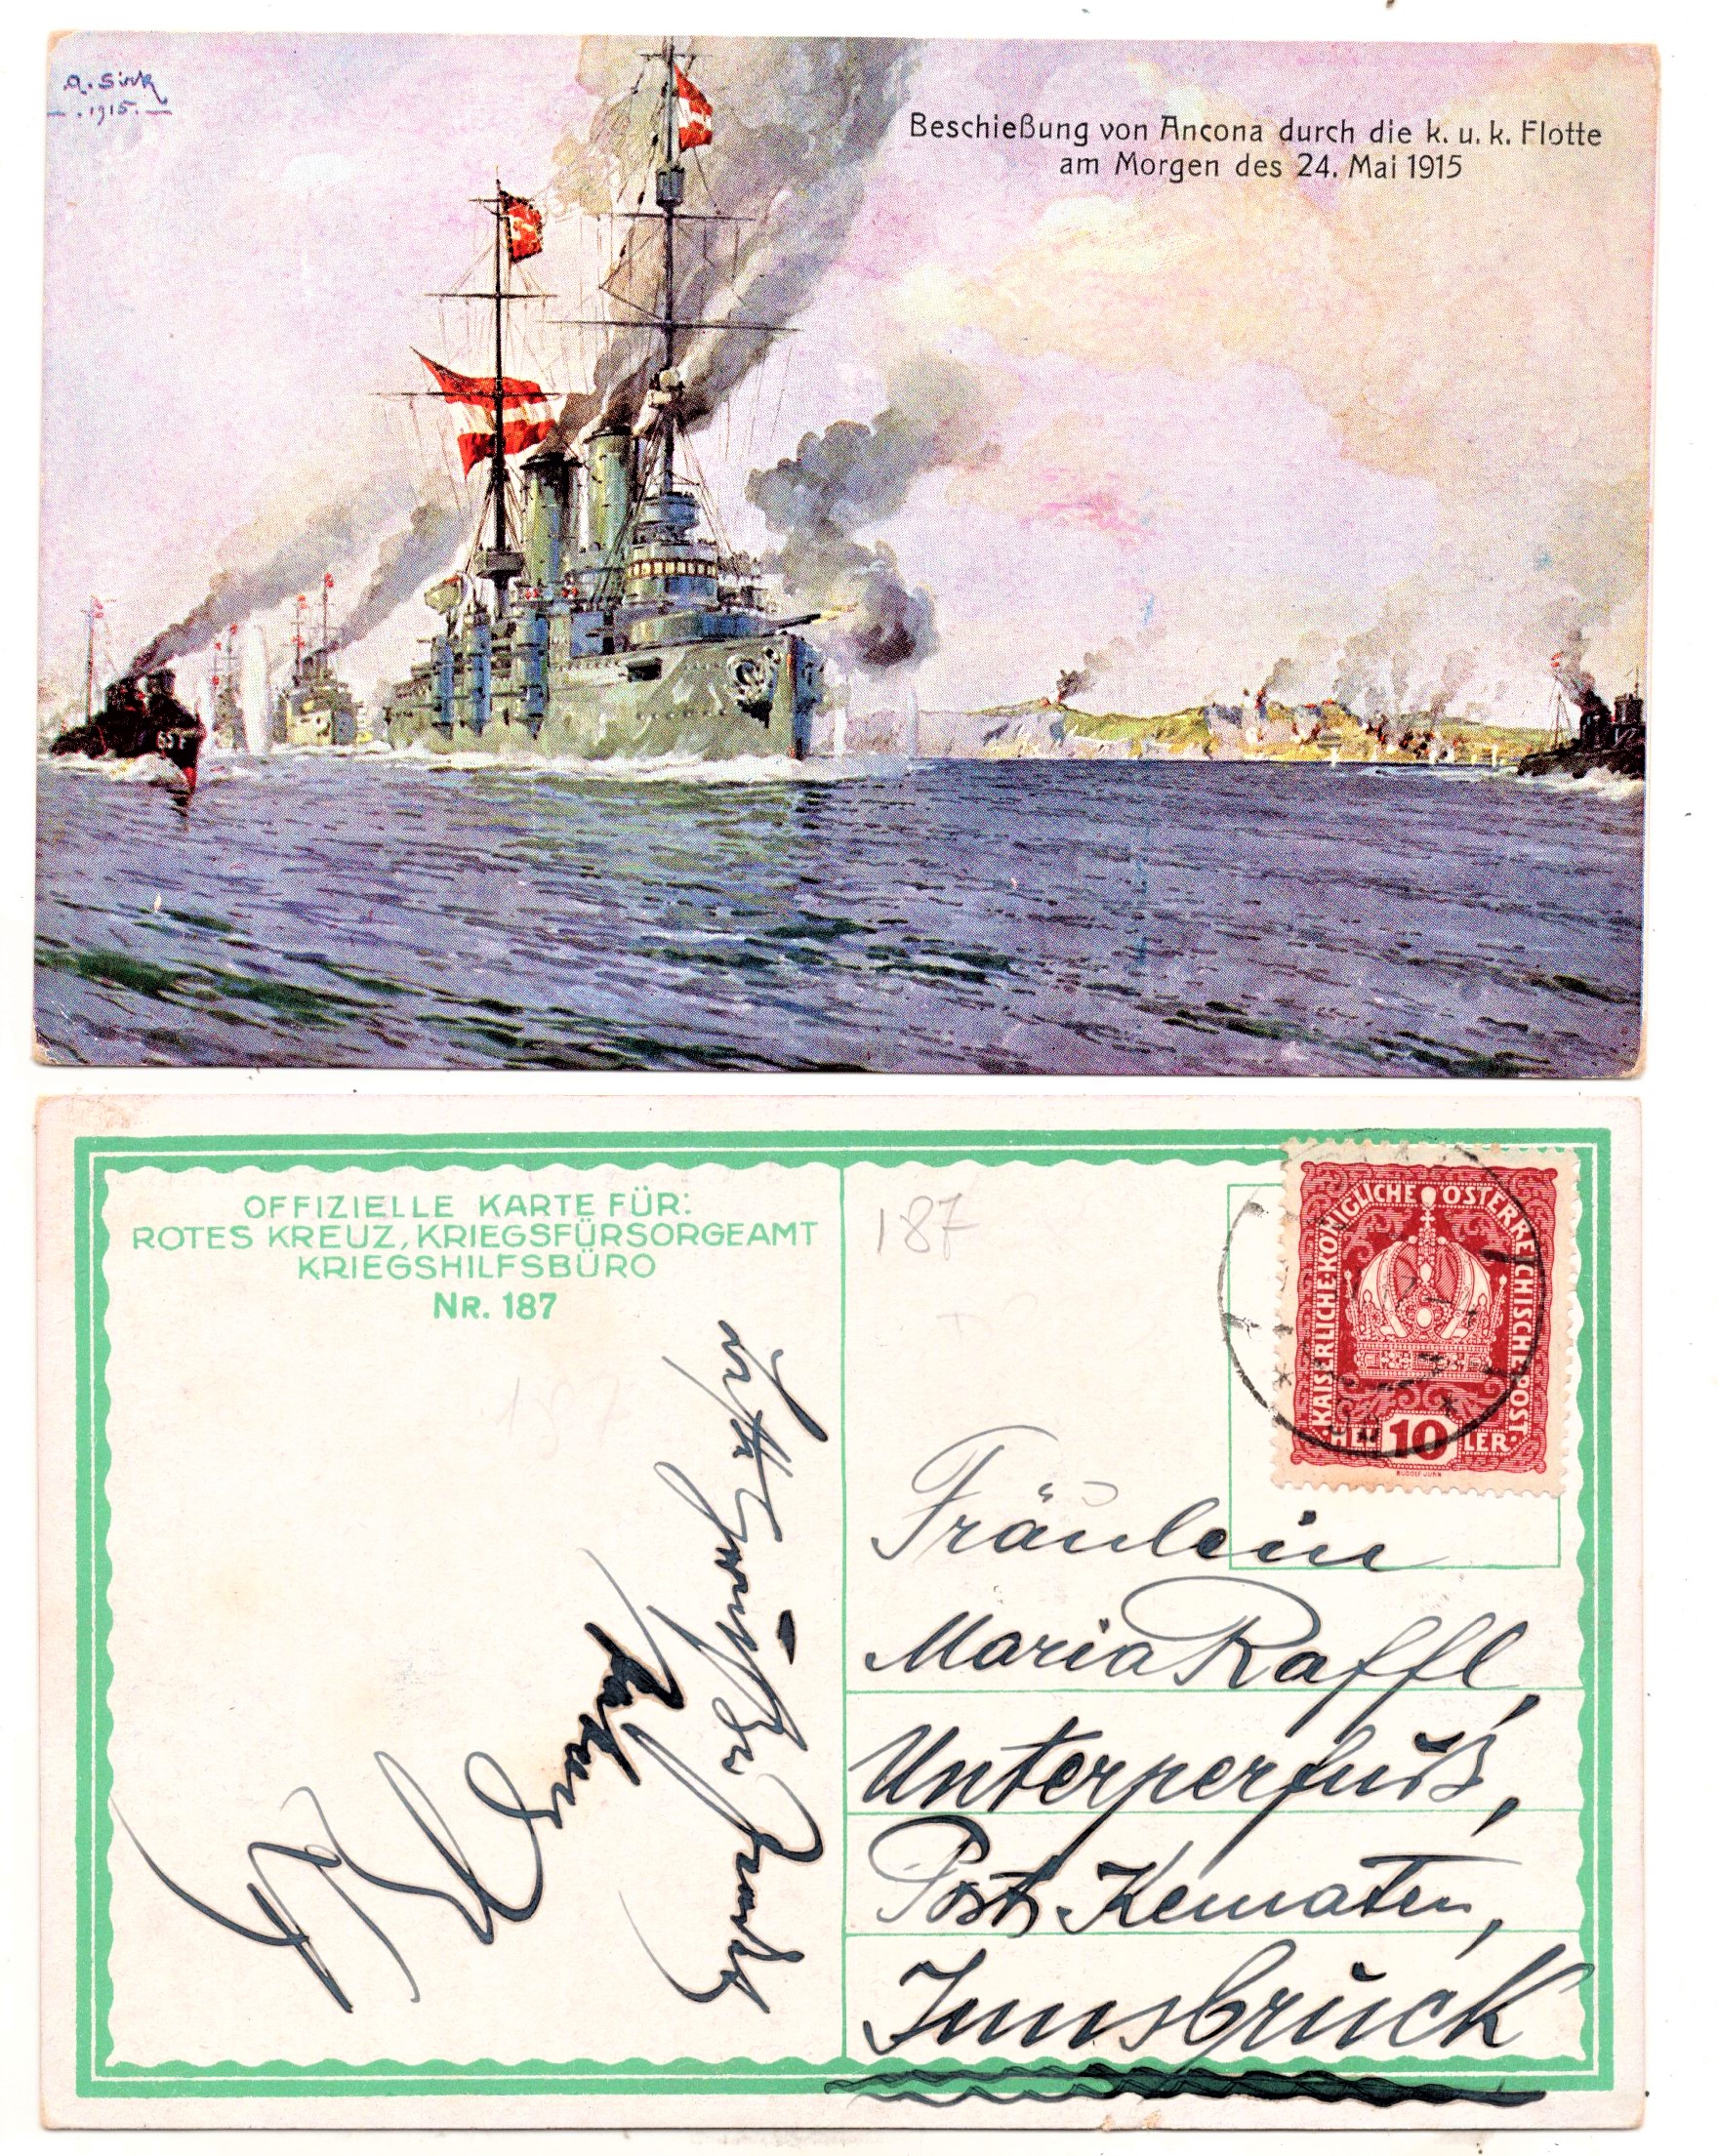 A. Sirk
1915.
Beschießung von Ancona durch die k. u. k. Flotte
am Morgen des 24. Mai 1915
OFFIZIELLE KARTE FÜR:
ROTES KREUZ, KRIEGSFÜRSORGEAMT
KRIEGSHILFSBÜRO
NR. 187
187
187
KAISERLICHE KÖNIGLICHE ÖSTERREICHISCHE POST
HEL 10 LER
RUDOLF JUNK
Fräulein
Maria Raffl,
Unterperfuß,
Post Kematen,
Innsbruck